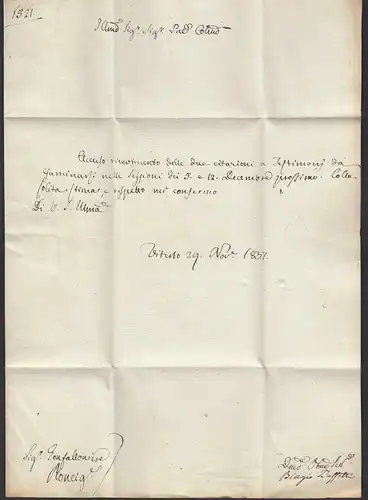 1821
Illmo Sigr. Sigr. Pne Colmo
Accuso ricevimento delle due citazioni a Testimonj da
esaminarsi nelle Sessioni dei 5. e 12. Decembre prossimo. Colla
solita stima, e rispetto mi confermo
Di V. S. Illma
Viterbo 29. Nove. 1821.
Sigr. Gonfaloniere
Roncige.
Biagio